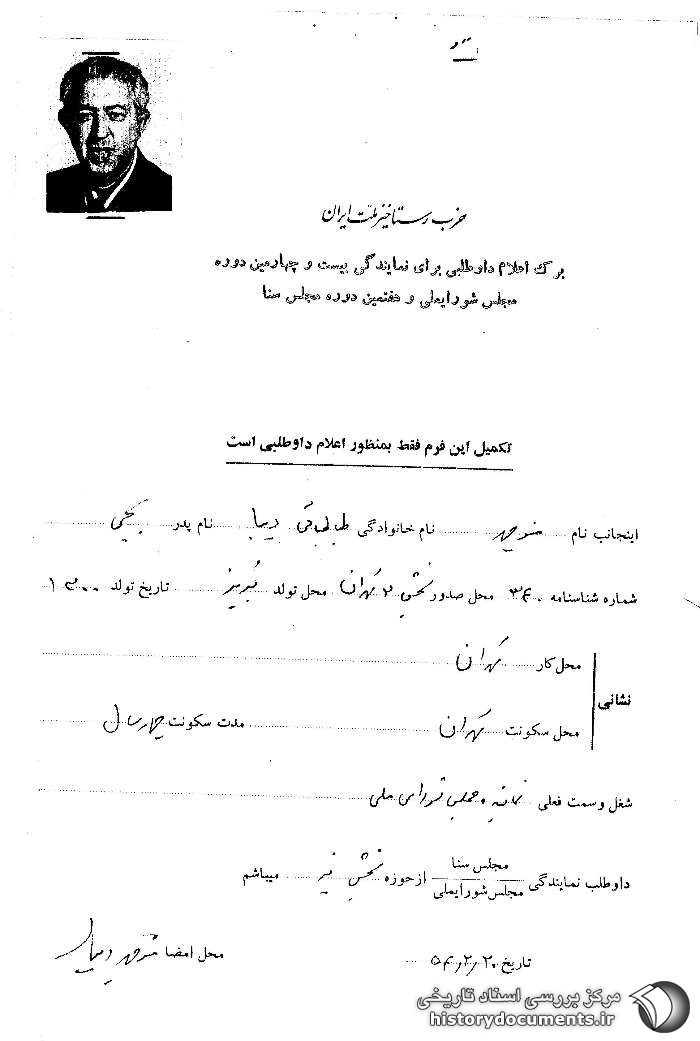 حزب رستاخیز ملت ایران
برگ اعلام داوطلبی برای نمایندگی بیست و چهارمین دوره
مجلس شورایملی و هفتمین دوره مجلس سنا
تکمیل این فرم فقط بمنظور اعلام داوطلبی است
اینجانب نام منوچهر نام خانوادگی طباطبائی دیبا نام پدر یحیی
شماره شناسنامه ۳۶۰ محل صدور بخش ۲ تهران محل تولد تبریز تاریخ تولد
نشانی
محل کار تهران
محل سکونت تهران مدت سکونت چهار سال
شغل و سمت فعلی نماینده مجلس شورای ملی
داوطلب نمایندگی مجلس سنا مجلس شورایملی از حوزه بخش میباشم
تاریخ ۵۴/۲/۲۰ محل امضا منوچهر دیبا
مرکز بررسی اسناد تاریخی
historydocuments.ir